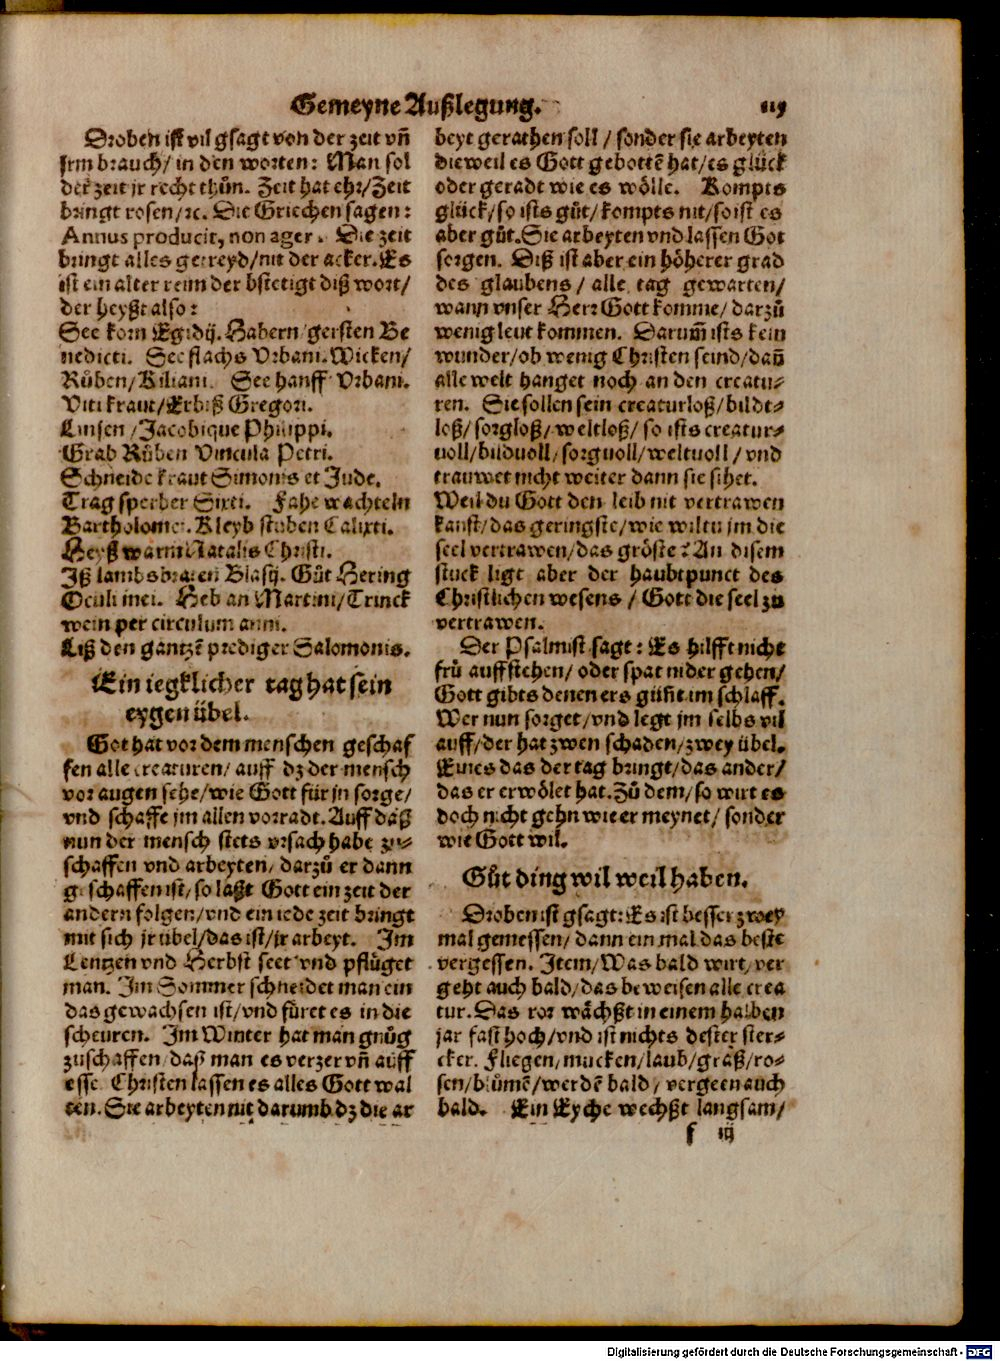 Gemeyne Außlegung. 119
Droben ist vil gsagt von der zeit vñ
jrm brauch/ in den worten: Man sol
der zeit jr recht thůn. Zeit hat ehr/Zeit
bringt rosen/ꝛc. Die Griechen sagen:
Annus producit, non ager. Die zeit
bringt alles getreyd/nit der acker. Es
ist ein alter reim der bstetigt diß wort/
der heyßt also:
See korn Egidij. Habern/gersten Be
nedicti. See flachs Vrbani. Wicken/
Růben/Kiliani. See hanff Vrbani.
Viti kraut/Erbiß Gregori.
Linsen/Jacobique Philippi.
Grab Růben Vincula Petri.
Schneide kraut Simonis et Jude.
Trag sperber Sixti. Fahe wachteln
Bartholomei. Kleyb stuben Calixti.
Heyß warm Natalis Christi.
Iß lambsbraten Blasij. Gůt Hering
Oculi mei. Heb an Martini/Trinck
wein per circulum anni.
Liß den gantzẽ prediger Salomonis.
Ein iegklicher tag hat sein
eygen übel.
Got hat vor dem menschen geschaf
fen alle creaturen/ auff dz der mensch
vor augen sehe/wie Gott für jn sorge/
vnd schaffe jm allen vorradt. Auff daß
nun der mensch stets vrsach habe zu⸗
schaffen vnd arbeyten/ darzů er dann
geschaffen ist/so laßt Gott ein zeit der
andern folgen/vnd ein iede zeit bringt
mit sich jr übel/das ist/jr arbeyt. Im
Lentzen vnd Herbst seet vnd pflüget
man. Im Sommer schneidet man ein
das gewachsen ist/vnd füret es in die
scheuren. Im Winter hat man gnůg
zuschaffen/daß man es verzer vñ auff
esse. Christen lassen es alles Gott wal
ten. Sie arbeyten nit darumb dz die ar
beyt gerathen soll/ sonder sie arbeyten
dieweil es Gott gebottẽ hat/es glück
oder geradt wie es wölle. Kompts
glück/so ists gůt/kompts nit/so ist es
aber gůt. Sie arbeyten vnd lassen Got
sorgen. Diß ist aber ein höherer grad
des glaubens/ alle tag gewarten/
wann vnser Herr Gott komme/darzů
wenig leut kommen. Darum̃ ists kein
wunder/ob wenig Christen seind/dañ
alle welt hanget noch an den creatu⸗
ren. Sie sollen sein creaturloß/bildt⸗
loß/sorgloß/weltloß/ so ists creatur⸗
uoll/bilduoll/sorguoll/weltuoll/vnd
trauwet nicht weiter dann sie sihet.
Weil du Gott den leib nit vertrawen
kanst/das geringste/wie wiltu jm die
seel vertrawen/das gröste? An disem
stuck ligt aber der haubtpunct des
Christlichen wesens/ Gott die seel zů
vertrawen.
Der Psalmist sagt: Es hilfft nicht
frů auffstehen/ oder spat nider gehen/
Gott gibts denen ers günt im schlaff.
Wer nun sorget/vnd legt jm selbs vil
auff/der hat zwen schaden/zwey übel.
Eines das der tag bringt/das ander/
das er erwölet hat. Zů dem/so wirt es
doch nicht gehn wie er meynet/ sonder
wie Gott wil.
Gůt ding wil weil haben.
Droben ist gsagt: Es ist besser zwey
mal gemessen/ dann ein mal das beste
vergessen. Item/Was bald wirt/ver
geht auch bald/das beweisen alle crea
tur. Das ror wächßt in einem halben
jar fast hoch/vnd ist nichts dester ster⸗
cker. Fliegen/mucken/laub/graß/ro⸗
sen/blůmẽ/werdẽ bald/vergeen auch
bald. Ein Eyche wechßt langsam/
f iij
Digitalisierung gefördert durch die Deutsche Forschungsgemeinschaft - DFG